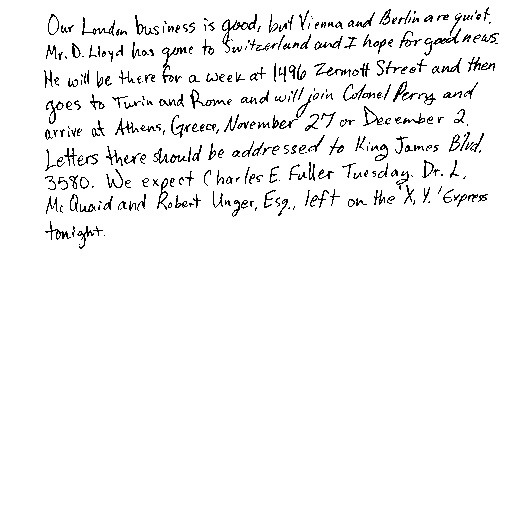 Our London business is good, but Vienna and Berlin are quiet.
Mr. D. Lloyd has gone to Switzerland and I hope for good news.
He will be there for a week at 1496 Zermott Street and then
goes to Turin and Rome and will join Colonel Perry and
arrive at Athens, Greece, November 27 or December 2.
Letters there should be addressed to King James Blvd.
3580. We expect Charles E. Fuller Tuesday. Dr. L.
McQuaid and Robert Unger, Esq., left on the 'X, Y.' Express
tonight.